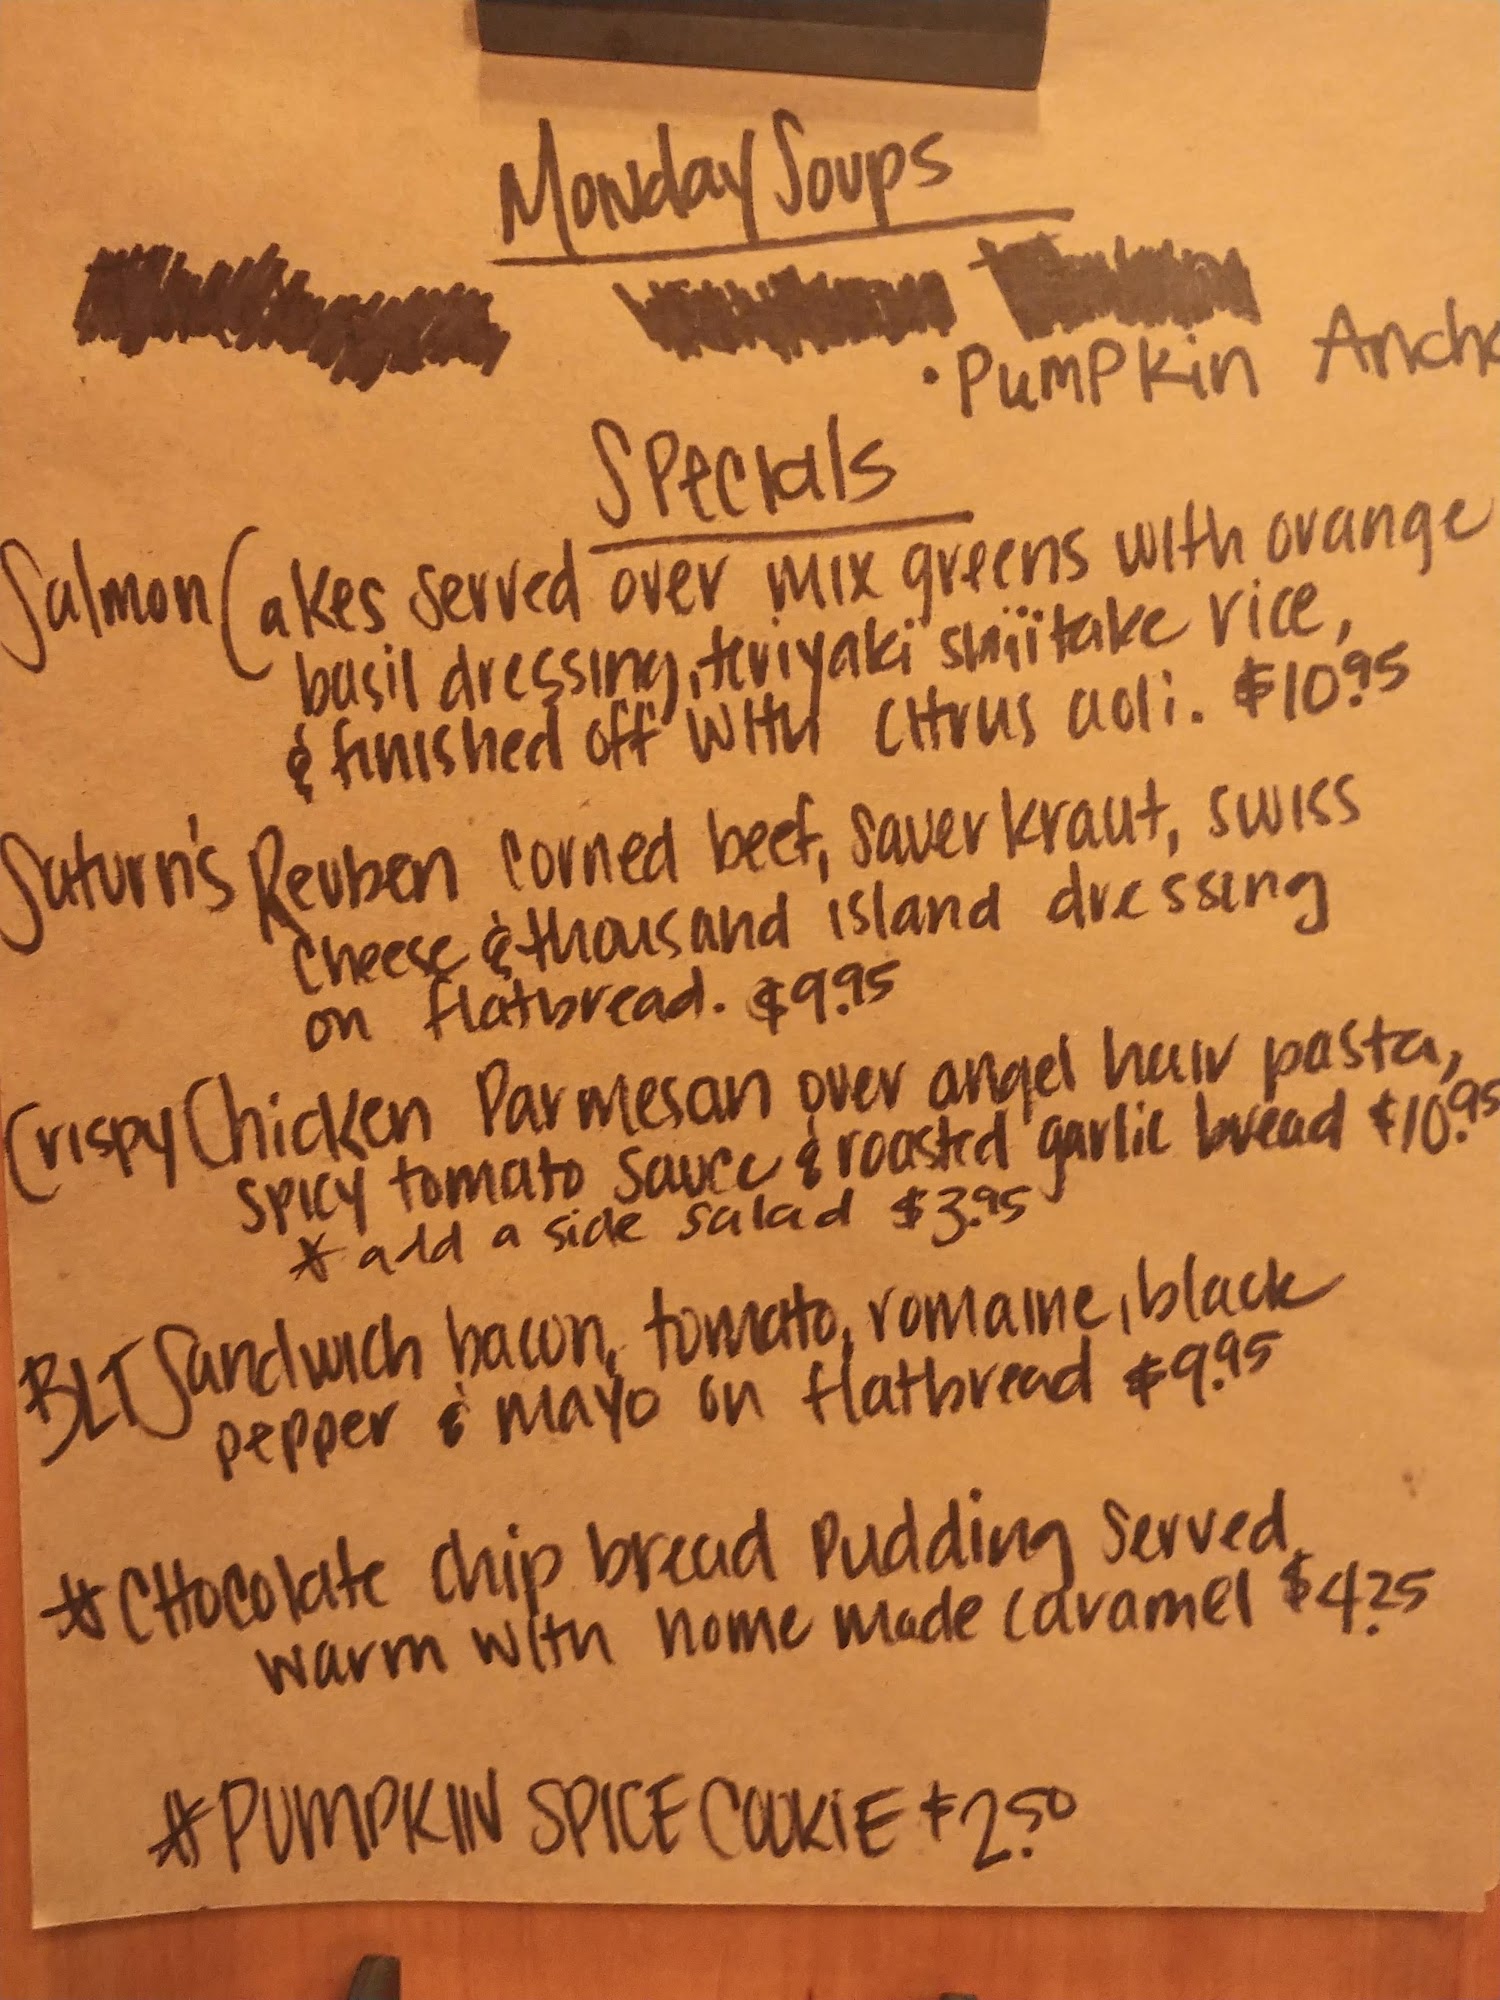 Monday Soups
• Pumpkin Ancho
Specials
Salmon Cakes served over mix greens with orange
basil dressing, teriyaki shiitake rice,
& finished off with citrus aoli. $10.95
Saturn's Reuben corned beef, sauerkraut, swiss
cheese & thousand island dressing
on flatbread. $9.95
Crispy Chicken Parmesan over angel hair pasta,
spicy tomato sauce & roasted garlic bread $10.95
* add a side salad $3.95
BLT Sandwich bacon, tomato, romaine, black
pepper & mayo on flatbread $9.95
*Chocolate chip bread Pudding served
warm with home made caramel $4.25
*PUMPKIN SPICE COOKIE $2.50